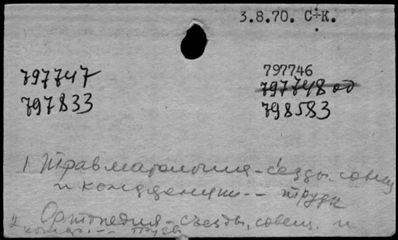 3.8.70. С+К.
797747
797833
797746
797748 од
798583
1 Травматология - съезды, совещ.
и конференции -- труды
2 Ортопедия - съезды, совещ. и
конф. -- труды